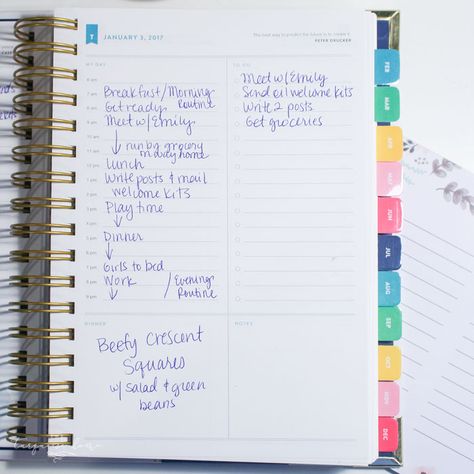 T
JANUARY 3, 2017
The best way to predict the future is to create it.
PETER DRUCKER
MY DAY
6 am
7 am
Breakfast/Morning
Routine
8 am
Get ready
9 am
Meet w/Emily
10 am
run by grocery
11 am
on way home
12 pm
Lunch
1 pm
Write posts & mail
2 pm
welcome kits
3 pm
Play time
4 pm
5 pm
Dinner
6 pm
7 pm
Girls to bed
8 pm
Work /Evening
9 pm
Routine
TO DO
Meet w/Emily
Send out welcome kits
Write 2 posts
Get groceries
DINNER
Beefy Crescent
Squares
w/ salad & green
beans
NOTES
FEB
MAR
APR
MAY
JUN
JUL
AUG
SEP
OCT
NOV
DEC